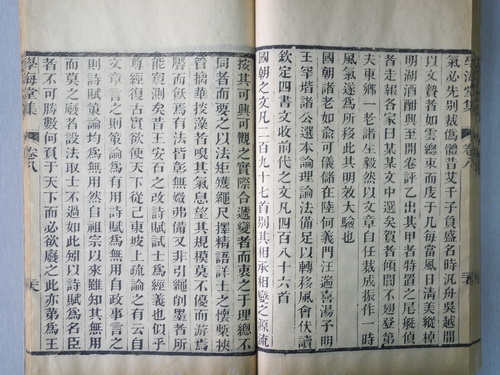 氣必先别裁僞體昔艾千子負盛名時汎舟吳越間
以文贄者如雲總束而庋于几每當風日淸美縱棹
明湖酒酣興至開卷評乙出其甲者特置之尾艇偵
者走報各家曰某某文中選矣賀者傾閭不翅登第
夫東鄉一老諸生毅然以文章自任裁成振作一時
風氣遂爲所移此其明效大驗也
國朝諸老如兪可儀儲在陸何義門汪遄喜湯子明
王罕皆諸公選本論理論法備足以轉移風會伏讀
欽定四書文收前代之文凡四百八十六首
國朝之文凡二百九十七首别其相承相變之源流
按其可興可觀之實際合遞變者而衷之于理總不
同者而要之以法矩矱繩尺擇精語詳士之懷鞶挾
管摛華掞藻者嗅其氣息望其規模莫不優而游焉
饜而飫焉有法皆彰無媺弗備又非引繩削墨者所
能窺測矣昔王安石之改詩賦試士爲經義也似乎
尊經復古實欲使天下從己東坡上疏論之有云自
文章言之則策論爲有用詩賦爲無用自政事言之
則詩賦策論均爲無用然自祖宗以來雖知其無用
而莫之廢者設法取士不過如此矧以詩賦爲名臣
者不可勝數何負于天下而必欲廢之此亦第爲王
學海堂集
卷八